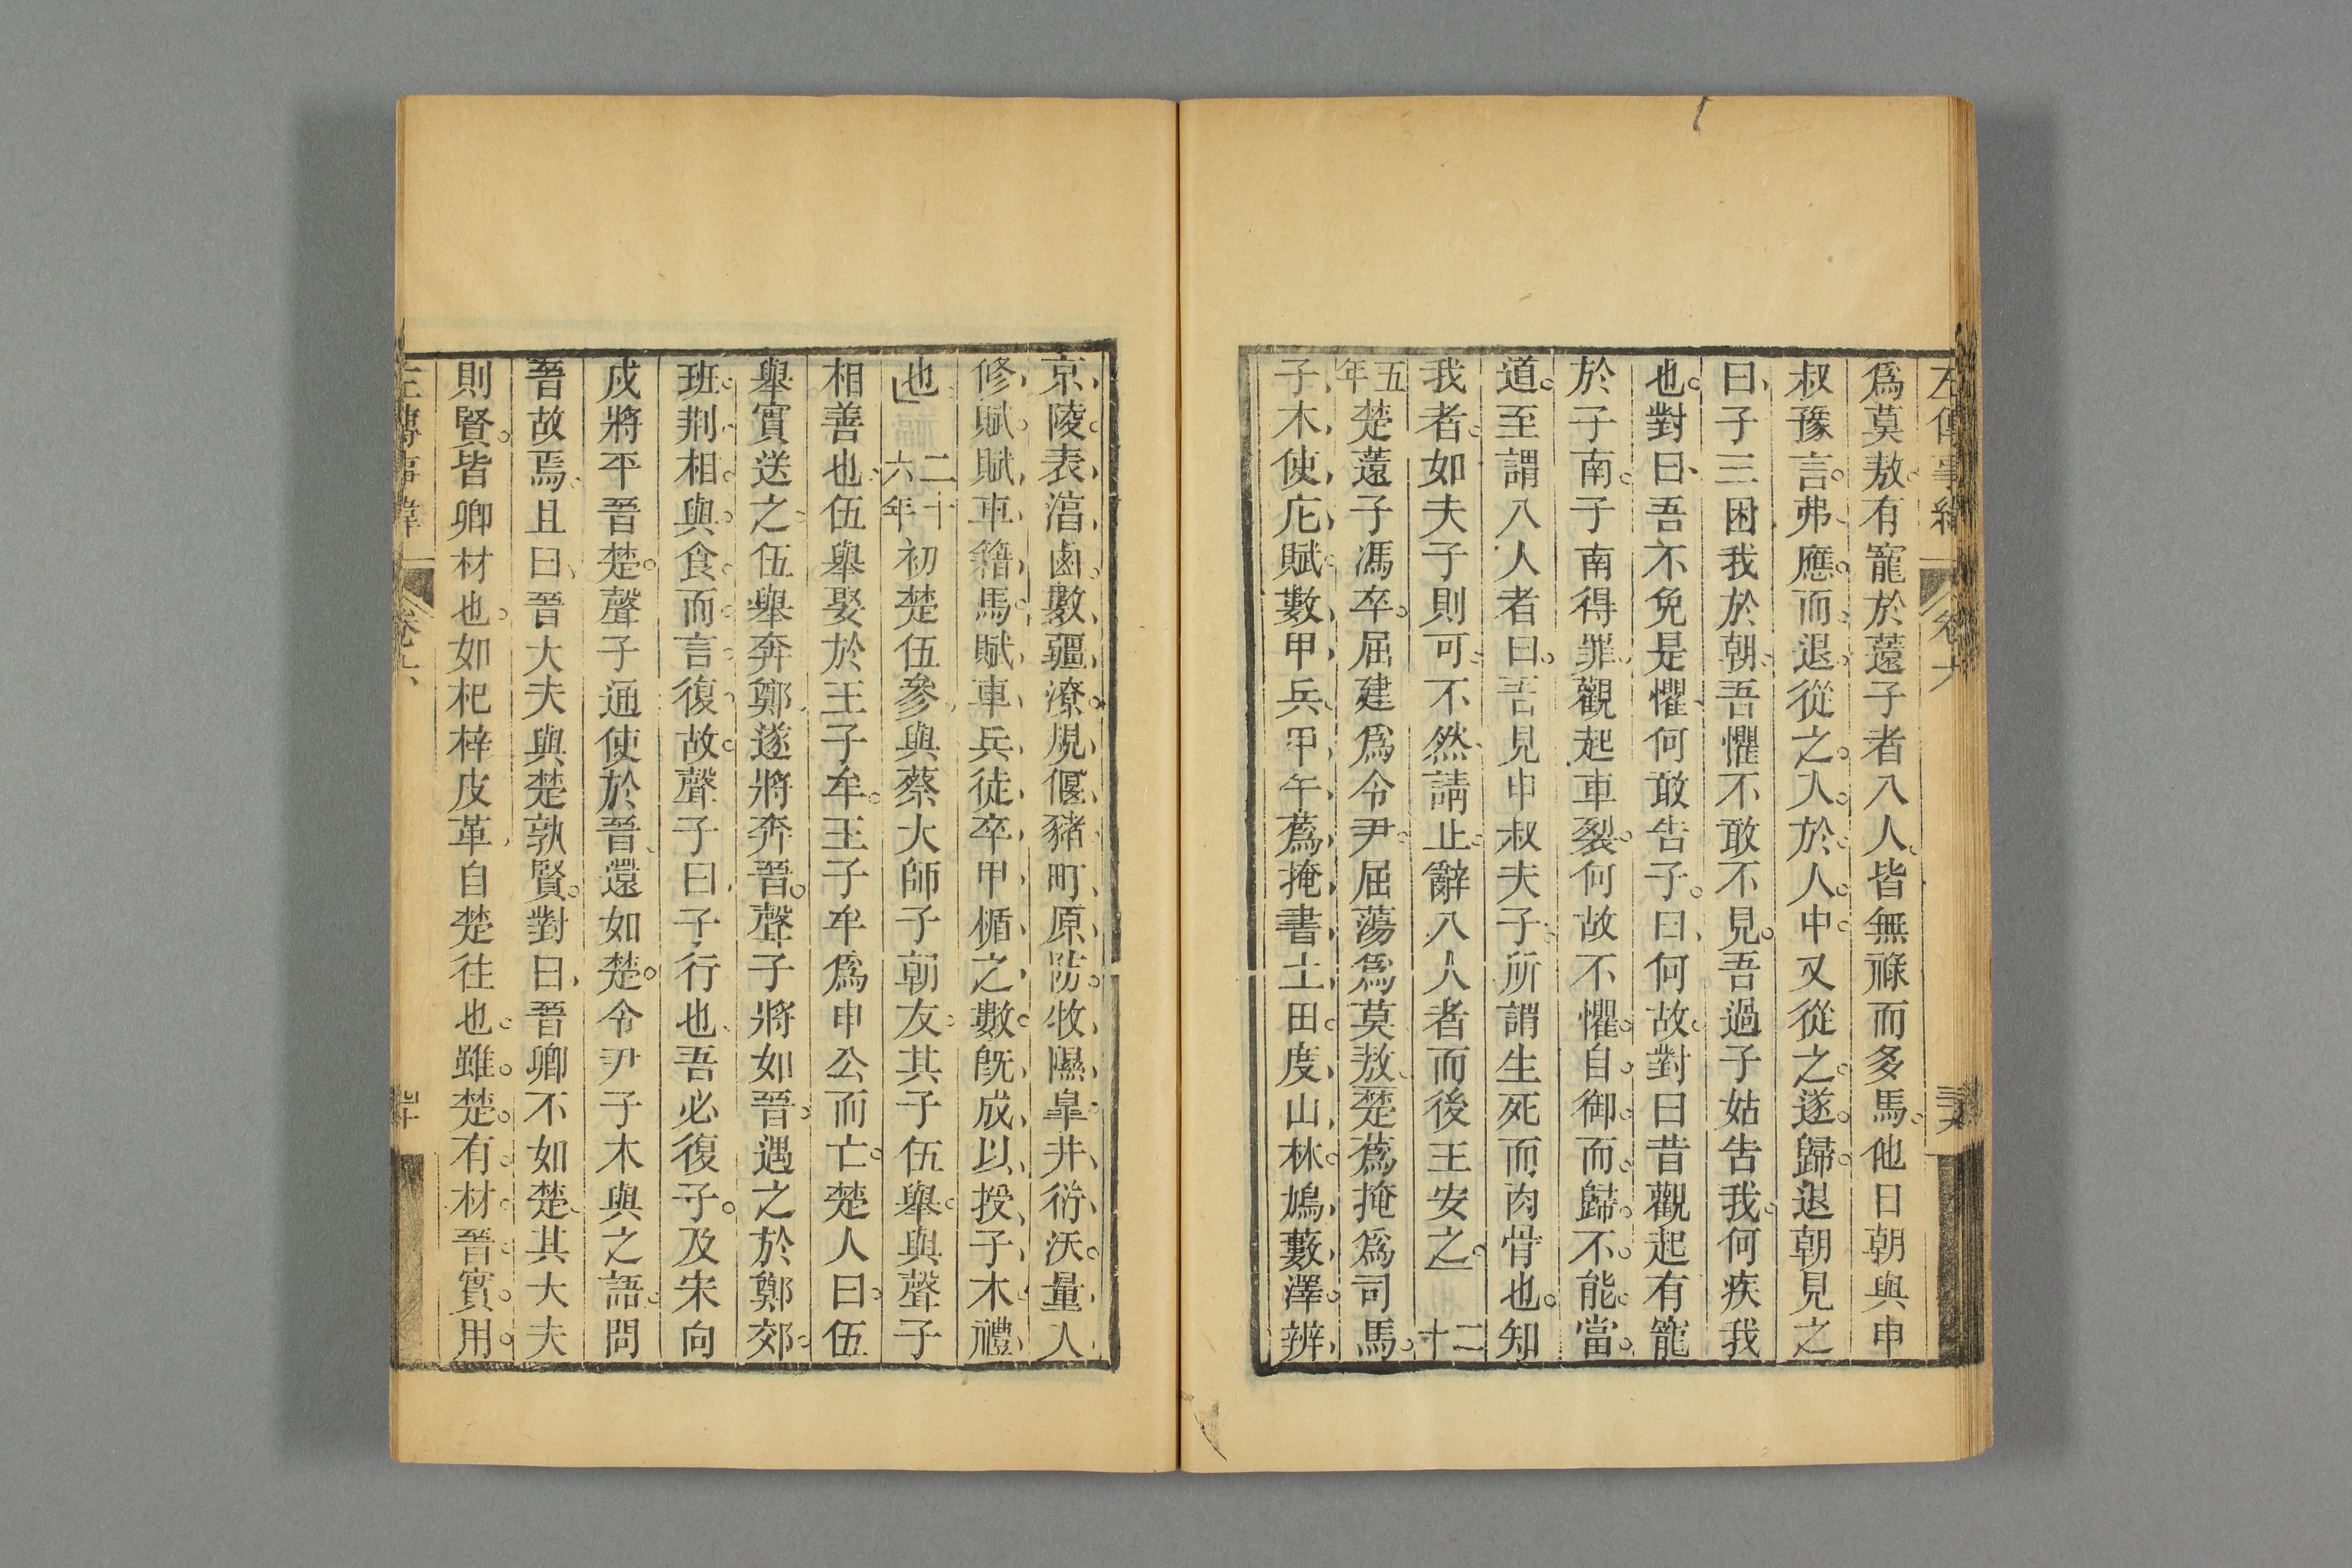 左傳事緯 卷六 三六
爲莫敖有寵於薳子者八人皆無祿而多馬他日朝與申
叔豫言弗應而退從之入於人中又從之遂歸退朝見之
曰子三困我於朝吾懼不敢不見吾過子姑告我何疾我
也對曰吾不免是懼何敢告子曰何故對曰昔觀起有寵
於子南子南得罪觀起車裂何故不懼自御而歸不能當
道至謂八人者曰吾見申叔夫子所謂生死而肉骨也知
我者如夫子則可不然請止辭八人者而後王安之 二十
五年楚薳子馮卒屈建爲令尹屈蕩爲莫敖楚蔿掩爲司馬
子木使庀賦數甲兵甲午蔿掩書土田度山林鳩藪澤辨
京陵表淳鹵數疆潦規偃豬町原防牧隰臯井衍沃量入
修賦賦車籍馬賦車兵徒卒甲楯之數旣成以授子木禮
也 二十六年初楚伍參與蔡大師子朝友其子伍舉與聲子
相善也伍舉娶於王子牟王子牟爲申公而亡楚人曰伍
舉實送之伍舉奔鄭遂將奔晉聲子將如晉遇之於鄭郊
班荆相與食而言復故聲子曰子行也吾必復子及宋向
戌將平晉楚聲子通使於晉還如楚令尹子木與之語問
晉故焉且曰晉大夫與楚孰賢對曰晉卿不如楚其大夫
則賢皆卿材也如杞梓皮革自楚往也雖楚有材晉實用
左傳事緯 卷六